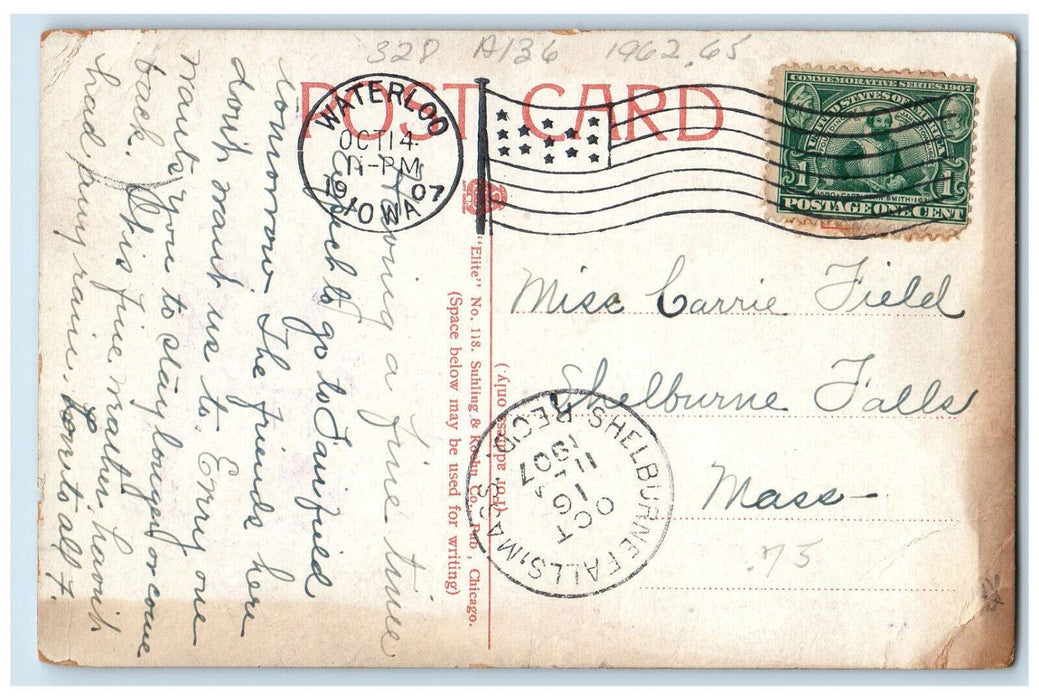 328 A136 1962.65
POST CARD
WATERLOO
OCT 14
11-PM
1907
IOWA
COMMEMORATIVE SERIES 1907
UNITED STATES OF AMERICA
1 1
SMITH
POSTAGE ONE CENT
Miss Carrie Field
Shelburne Falls
Mass-
.75
SHELBURNE FALLS, MASS.
REC'D.
1907
OCT
16
"Elite" No. 118. Suhling & Koehn Co., Pub., Chicago.
(Space below may be used for writing)
(For address only.)
Having a fine time
Expect to go to Fairfield
tomorrow. The friends here
don't want us to. Every one
wants you to stay longer or come
back. This fine weather, haven't
had any rain.